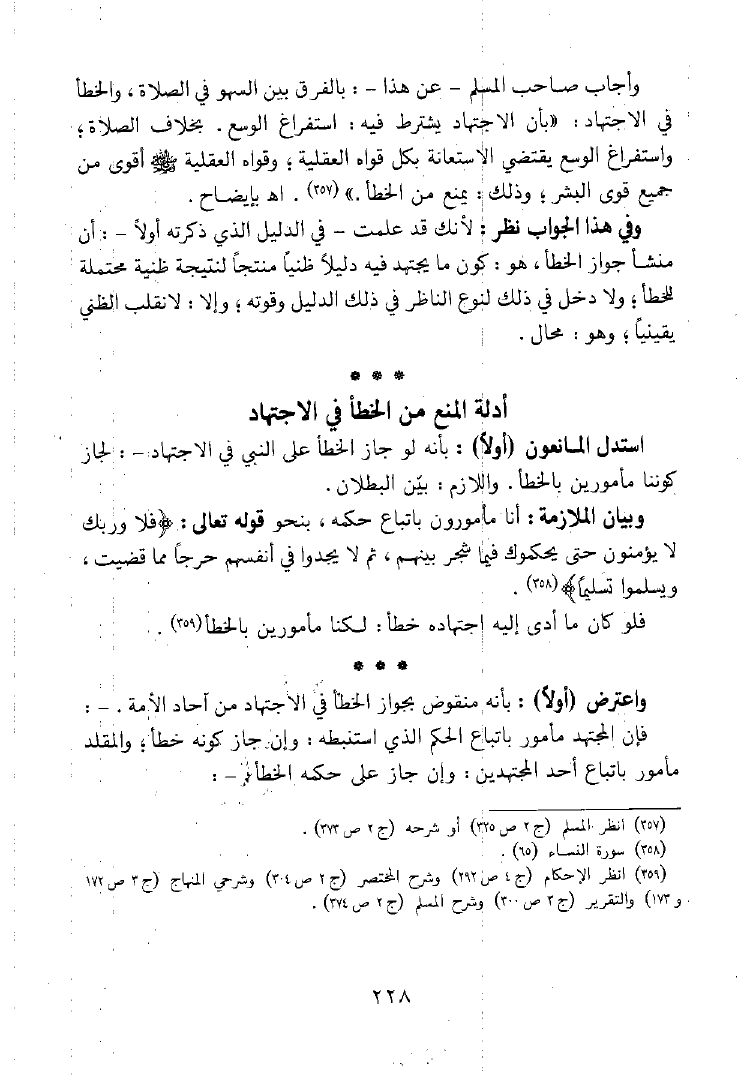 وأجاب صاحب المسلم - عن هذا - : بالفرق بين السهو في الصلاة ، والخطأ
في الاجتهاد : «بأن الاجتهاد يشترط فيه : استفراغ الوسع . بخلاف الصلاة ؛
واستفراغ الوسع يقتضي الاستعانة بكل قواه العقلية ؛ وقواه العقلية ﷺ أقوى من
جميع قوى البشر ؛ وذلك : يمنع من الخطأ .» (٣٥٧) . اهـ بإيضاح .
وفي هذا الجواب نظر : لأنك قد علمت - في الدليل الذي ذكرته أولاً - : أن
منشأ جواز الخطأ ، هو : كون ما يجتهد فيه دليلاً ظنياً منتجاً لنتيجة ظنية محتملة
للخطأ ؛ ولا دخل في ذلك لنوع الناظر في ذلك الدليل وقوته ؛ وإلا : لانقلب الظني
يقينياً ؛ وهو : محال .
* * *
أدلة المنع من الخطأ في الاجتهاد
استدل المانعون (أولاً) : بأنه لو جاز الخطأ على النبي في الاجتهاد - : لجاز
كوننا مأمورين بالخطأ . واللازم : بيّن البطلان .
وبيان الملازمة : أنا مأمورون باتباع حكمه ، بنحو قوله تعالى : ﴿فلا وربك
لا يؤمنون حتى يحكموك فيما شجر بينهم ، ثم لا يجدوا في أنفسهم حرجاً مما قضيت ،
ويسلموا تسليماً﴾ (٣٥٨) .
فلو كان ما أدى إليه اجتهاده خطأ : لكنا مأمورين بالخطأ (٣٥٩) .
* * *
واعترض (أولاً) : بأنه منقوض بجواز الخطأ في الاجتهاد من آحاد الأمة . - :
فإن المجتهد مأمور باتباع الحكم الذي استنبطه : وإن جاز كونه خطأ ؛ والمقلد
مأمور باتباع أحد المجتهدين : وإن جاز على حكمه الخطأ - :
(٣٥٧) انظر المسلم (ج ٢ ص ٣٢٥) أو شرحه (ج ٢ ص ٣٧٣) .
(٣٥٨) سورة النساء (٦٥) .
(٣٥٩) انظر الإحكام (ج ٤ ص ٢٩٢) وشرح المختصر (ج ٢ ص ٣٠٤) وشرحي المنهاج (ج ٣ ص ١٧٢
و ١٧٣) والتقرير (ج ٢ ص ٣٠٠) وشرح المسلم (ج ٢ ص ٣٧٤) .
٢٢٨